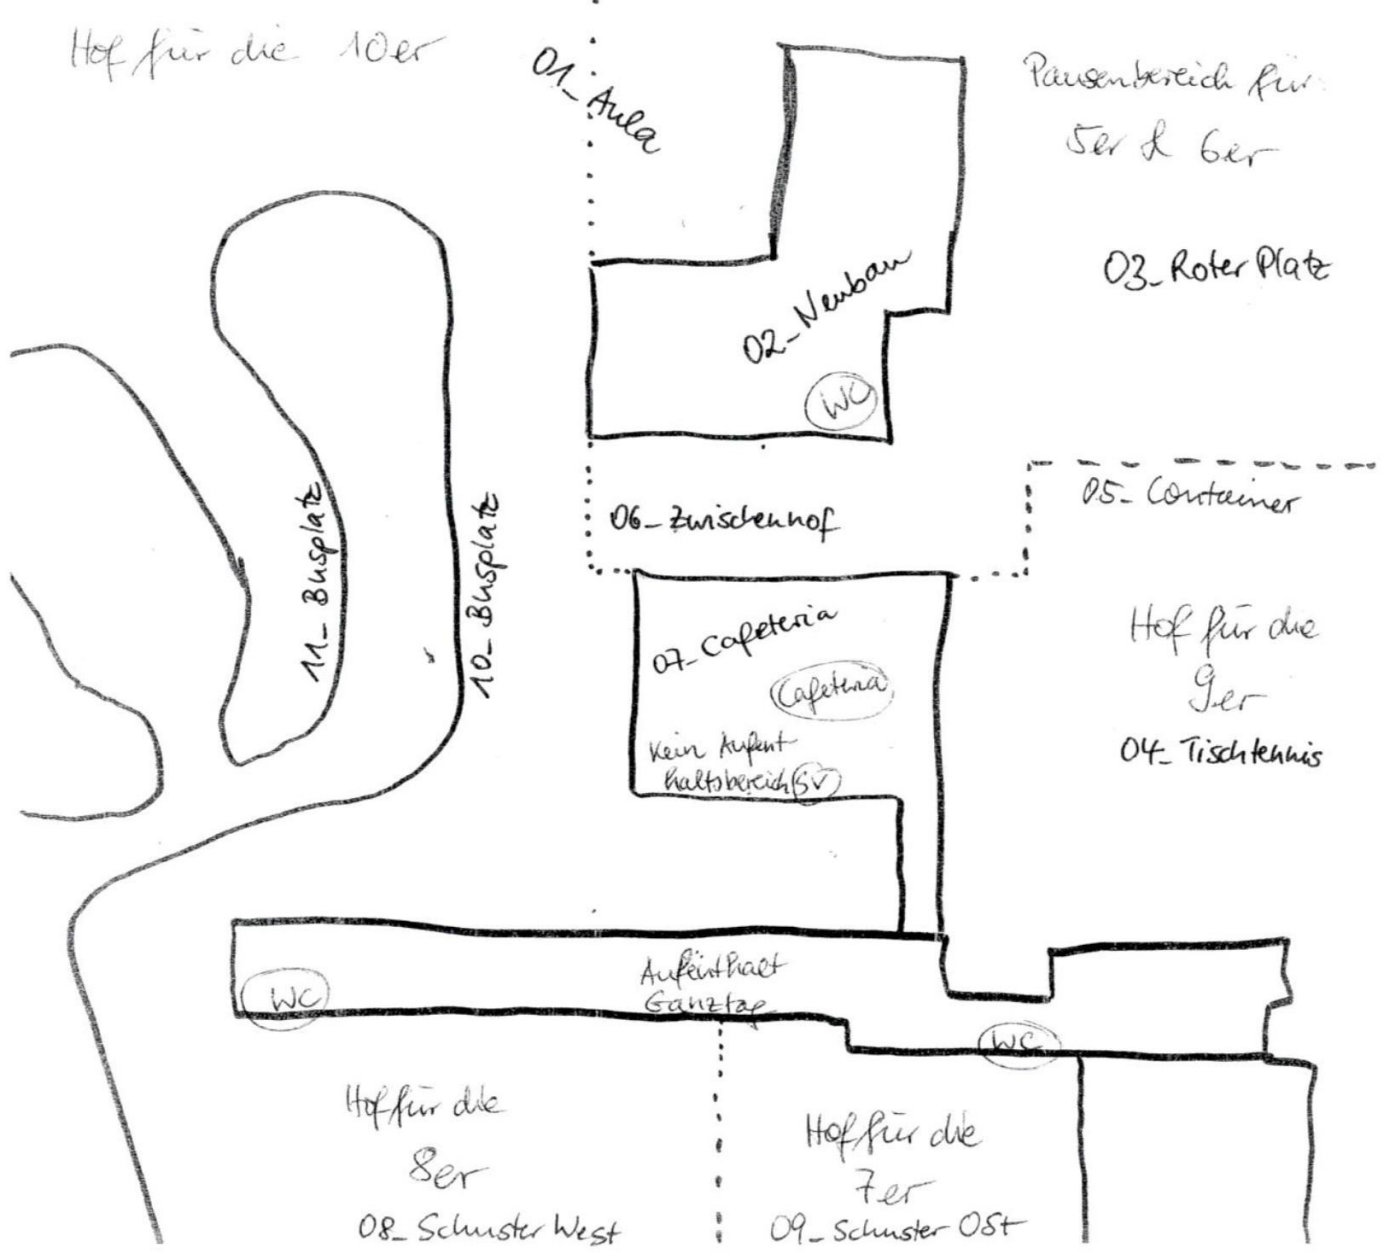 Hof für die 10er
01_Aula
Pausenbereich für
5er & 6er
03_Roter Platz
02_Neubau
WC
05_Container
06_Zwischenhof
11_Busplatz
10_Busplatz
07_Cafeteria
Cafeteria
Kein Aufent
haltsbereich SV
Hof für die
9er
04_Tischtennis
Aufenthalt
Ganztag
WC
WC
Hof für die
8er
08_Schuster West
Hof für die
7er
09_Schuster Ost